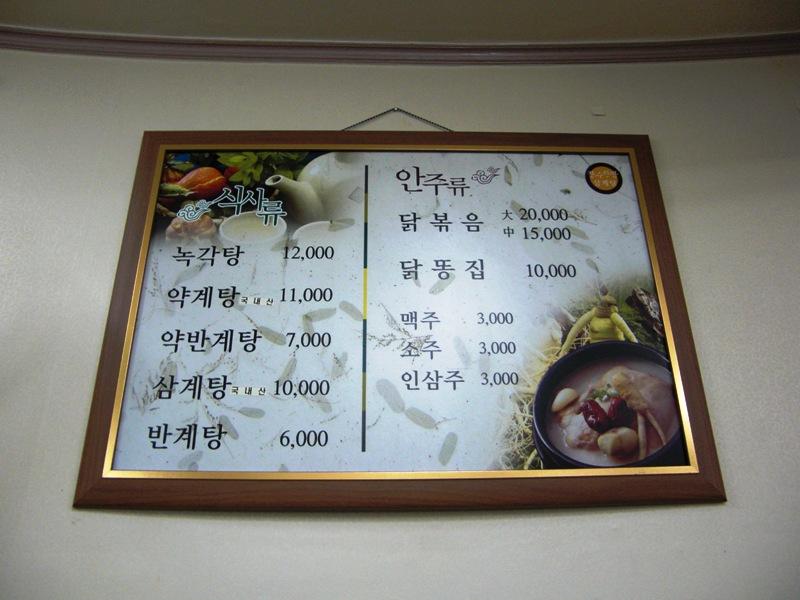 식사류
녹각탕 12,000
약계탕 국내산 11,000
약반계탕 7,000
삼계탕 국내산 10,000
반계탕 6,000
안주류
닭볶음 大 20,000
中 15,000
닭똥집 10,000
맥주 3,000
소주 3,000
인삼주 3,000